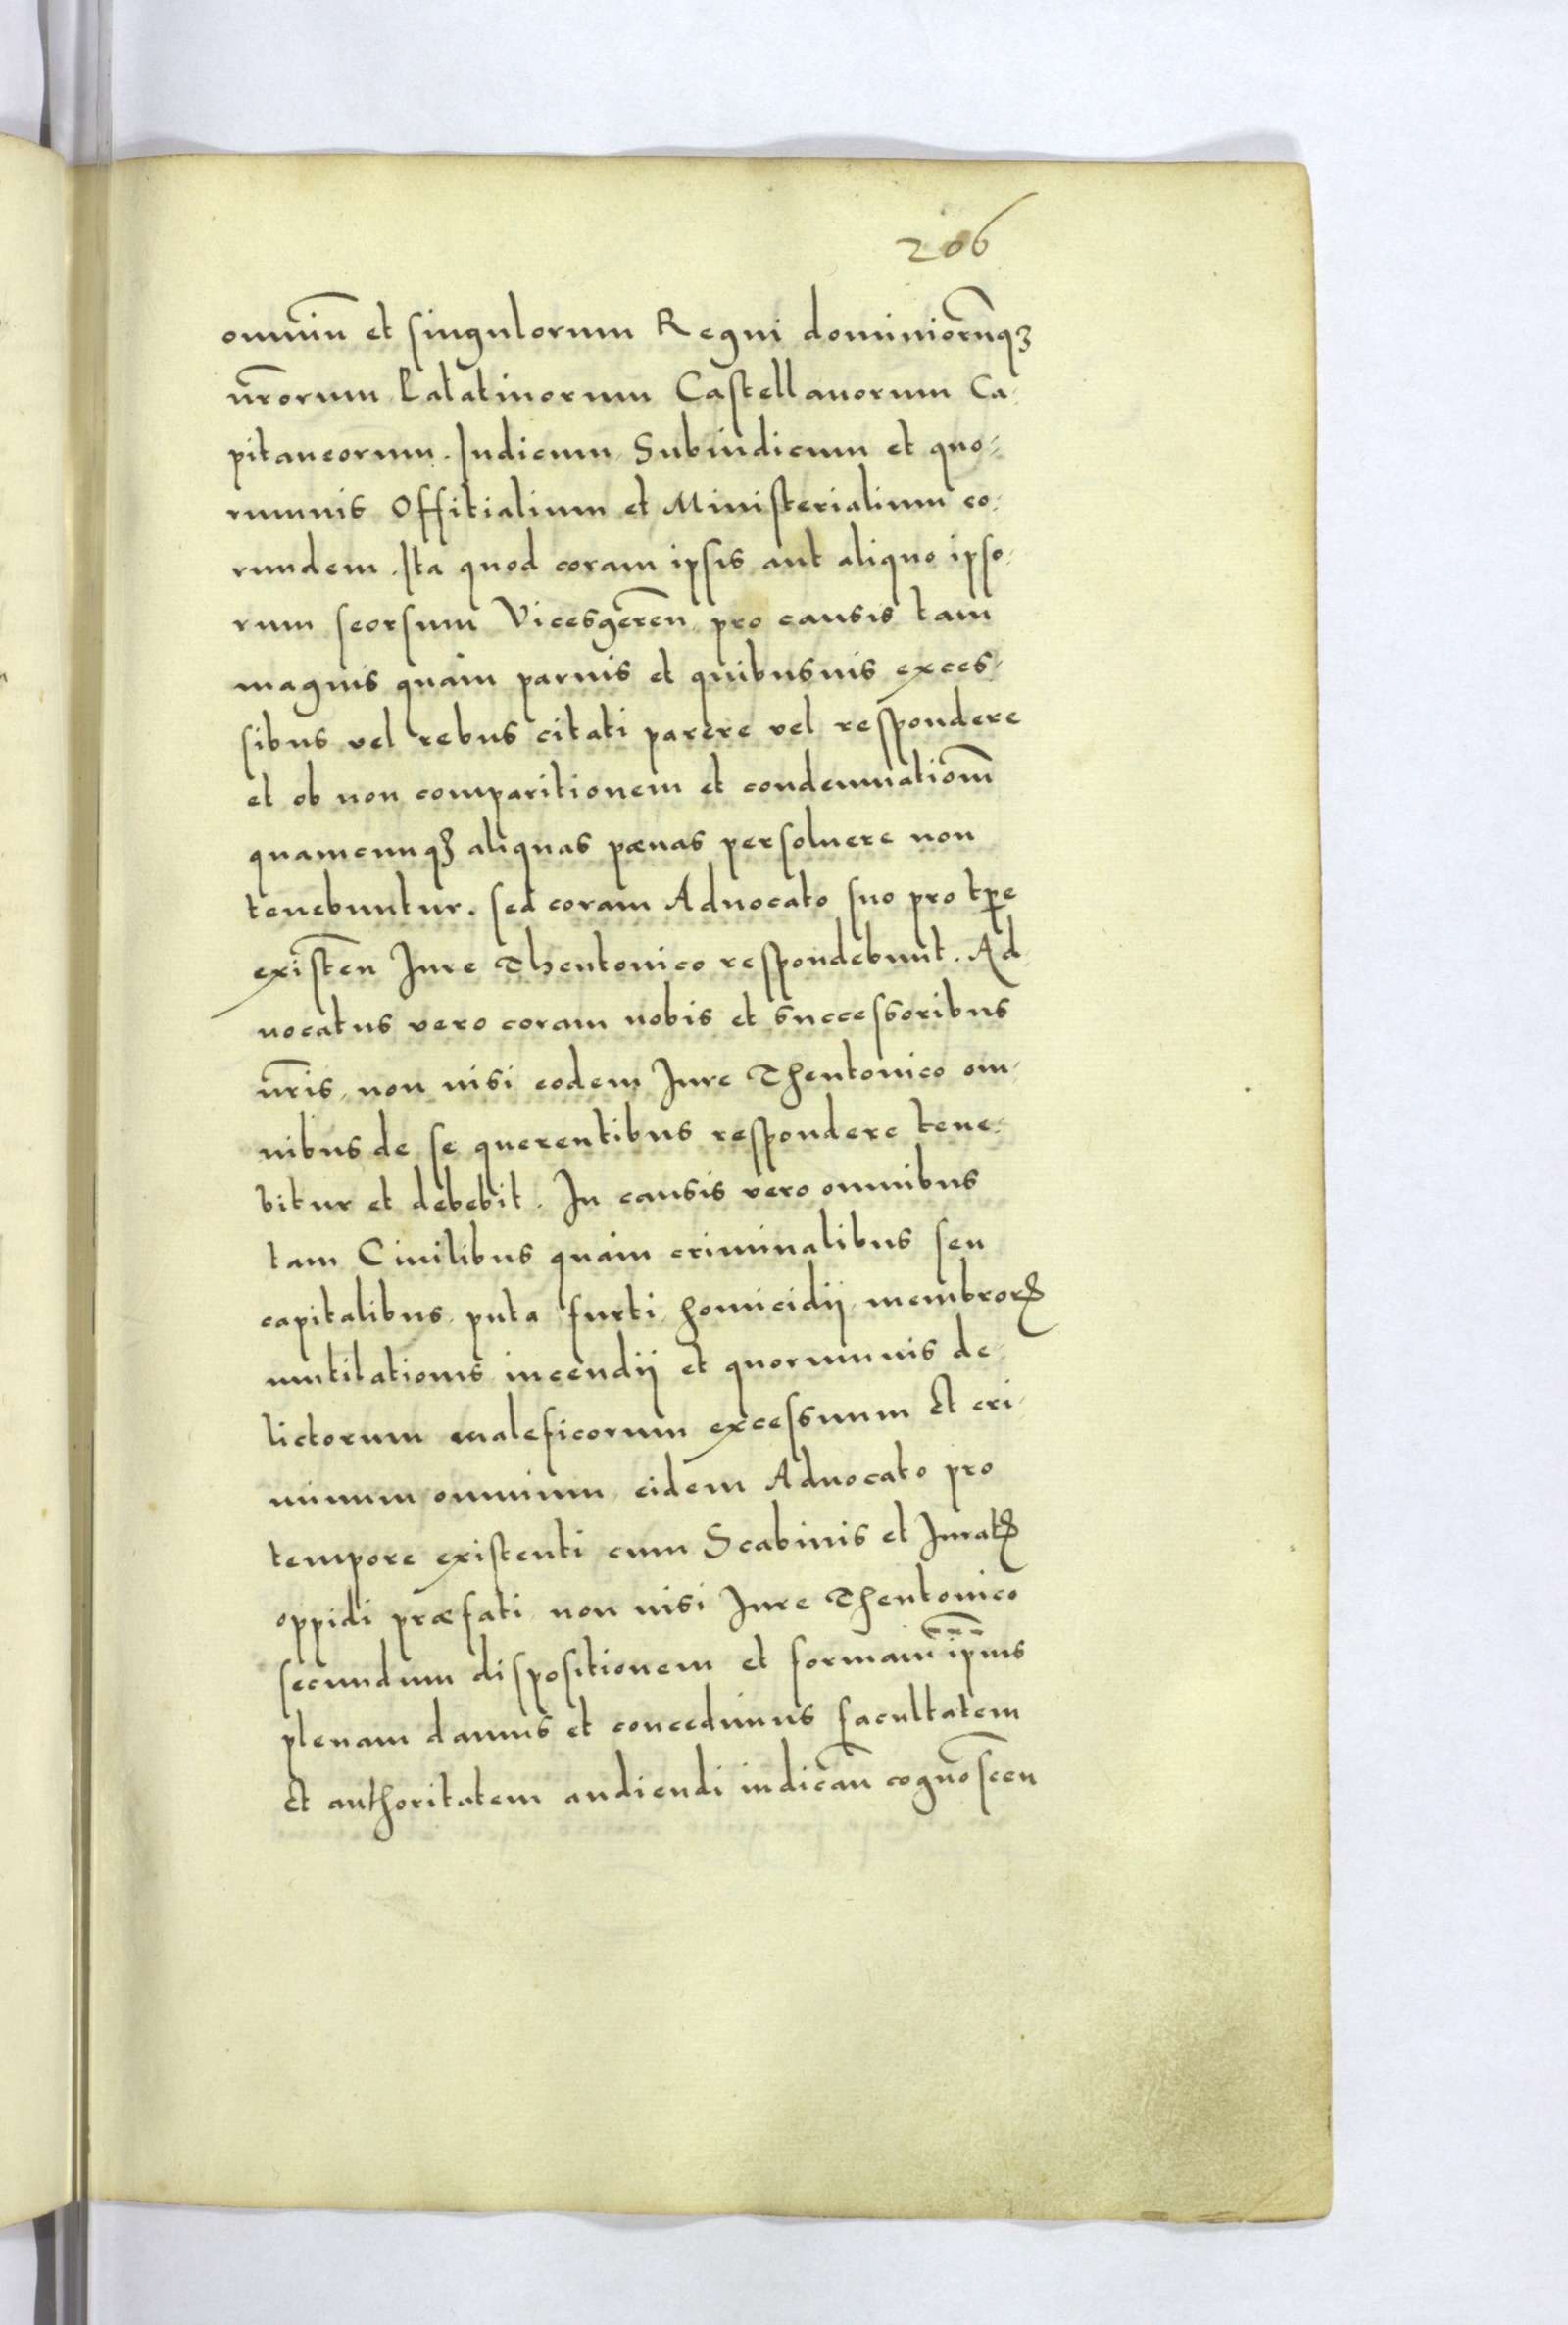 206
omniũ et singulorum Regni dominiorũqꝫ
nr̃orum Palatinorum Castellanorum Ca-
pitaneorum. Iudicum Subiudicum et quo-
rumuis Offitialium et Ministerialium eo-
rundem. Ita quod coram ipsis aut aliquo ipso-
rum seorsum Vicesgereñ pro causis tam
magnis quàm paruis et quibusuis exces-
sibus vel rebus citati parere vel respondere
et ob non comparitionem et condemnatiom̃
quamcunqꝫ aliquas pænas persoluere non
tenebuntur. sed coram Aduocato suo pro tp̃e
existeñ Iure Theutonico respondebunt. Ad
uocatus vero coram nobis et successoribus
nr̃is, non nisi eodem Iure Theutonico om-
nibus de se querentibus respondere tene-
bitur et debebit. In causis vero omnibus
tam Ciuilibus quàm criminalibus seu
capitalibus, puta furti, homicidij, membrorꝫ
mutilationis incendij et quorumuis de-
lictorum maleficorum excessuum et cri-
minum omnium, eidem Aduocato pro
tempore existenti cum Scabinis et Iuratꝫ
oppidi præfati, non nisi Iure Theutonico
secundum dispositionem et formam ip̃ius
plenam damus et concedimus facultatem
et authoritatem audiendi iudicañ cognosceñ